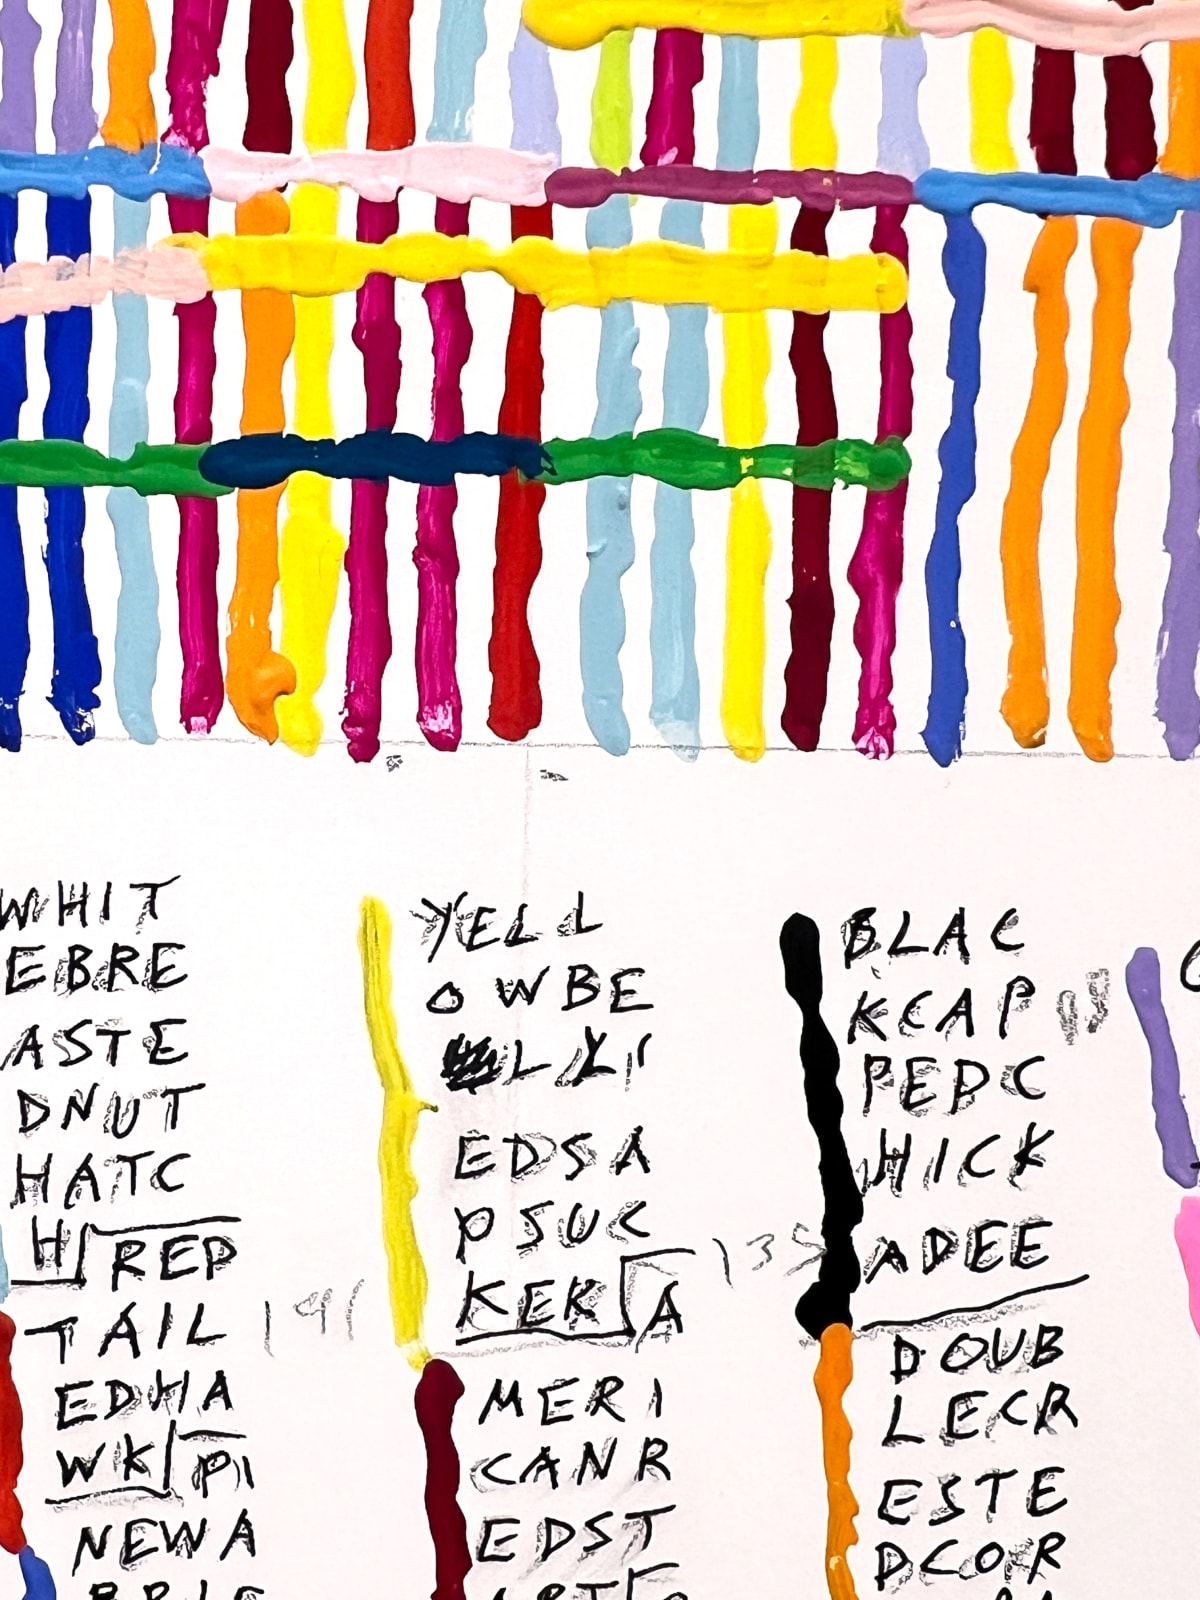 WHIT
EBRE
ASTE
DNUT
HATC
H REP
TAIL
EDHA
WK PI
NEWA
YELL
OWBE
LLI
EDSA
PSUC
KER A
MERI
CANR
EDST
BLAC
KCAP
PEDC
HICK
ADEE
DOUB
LECR
ESTE
DCOR